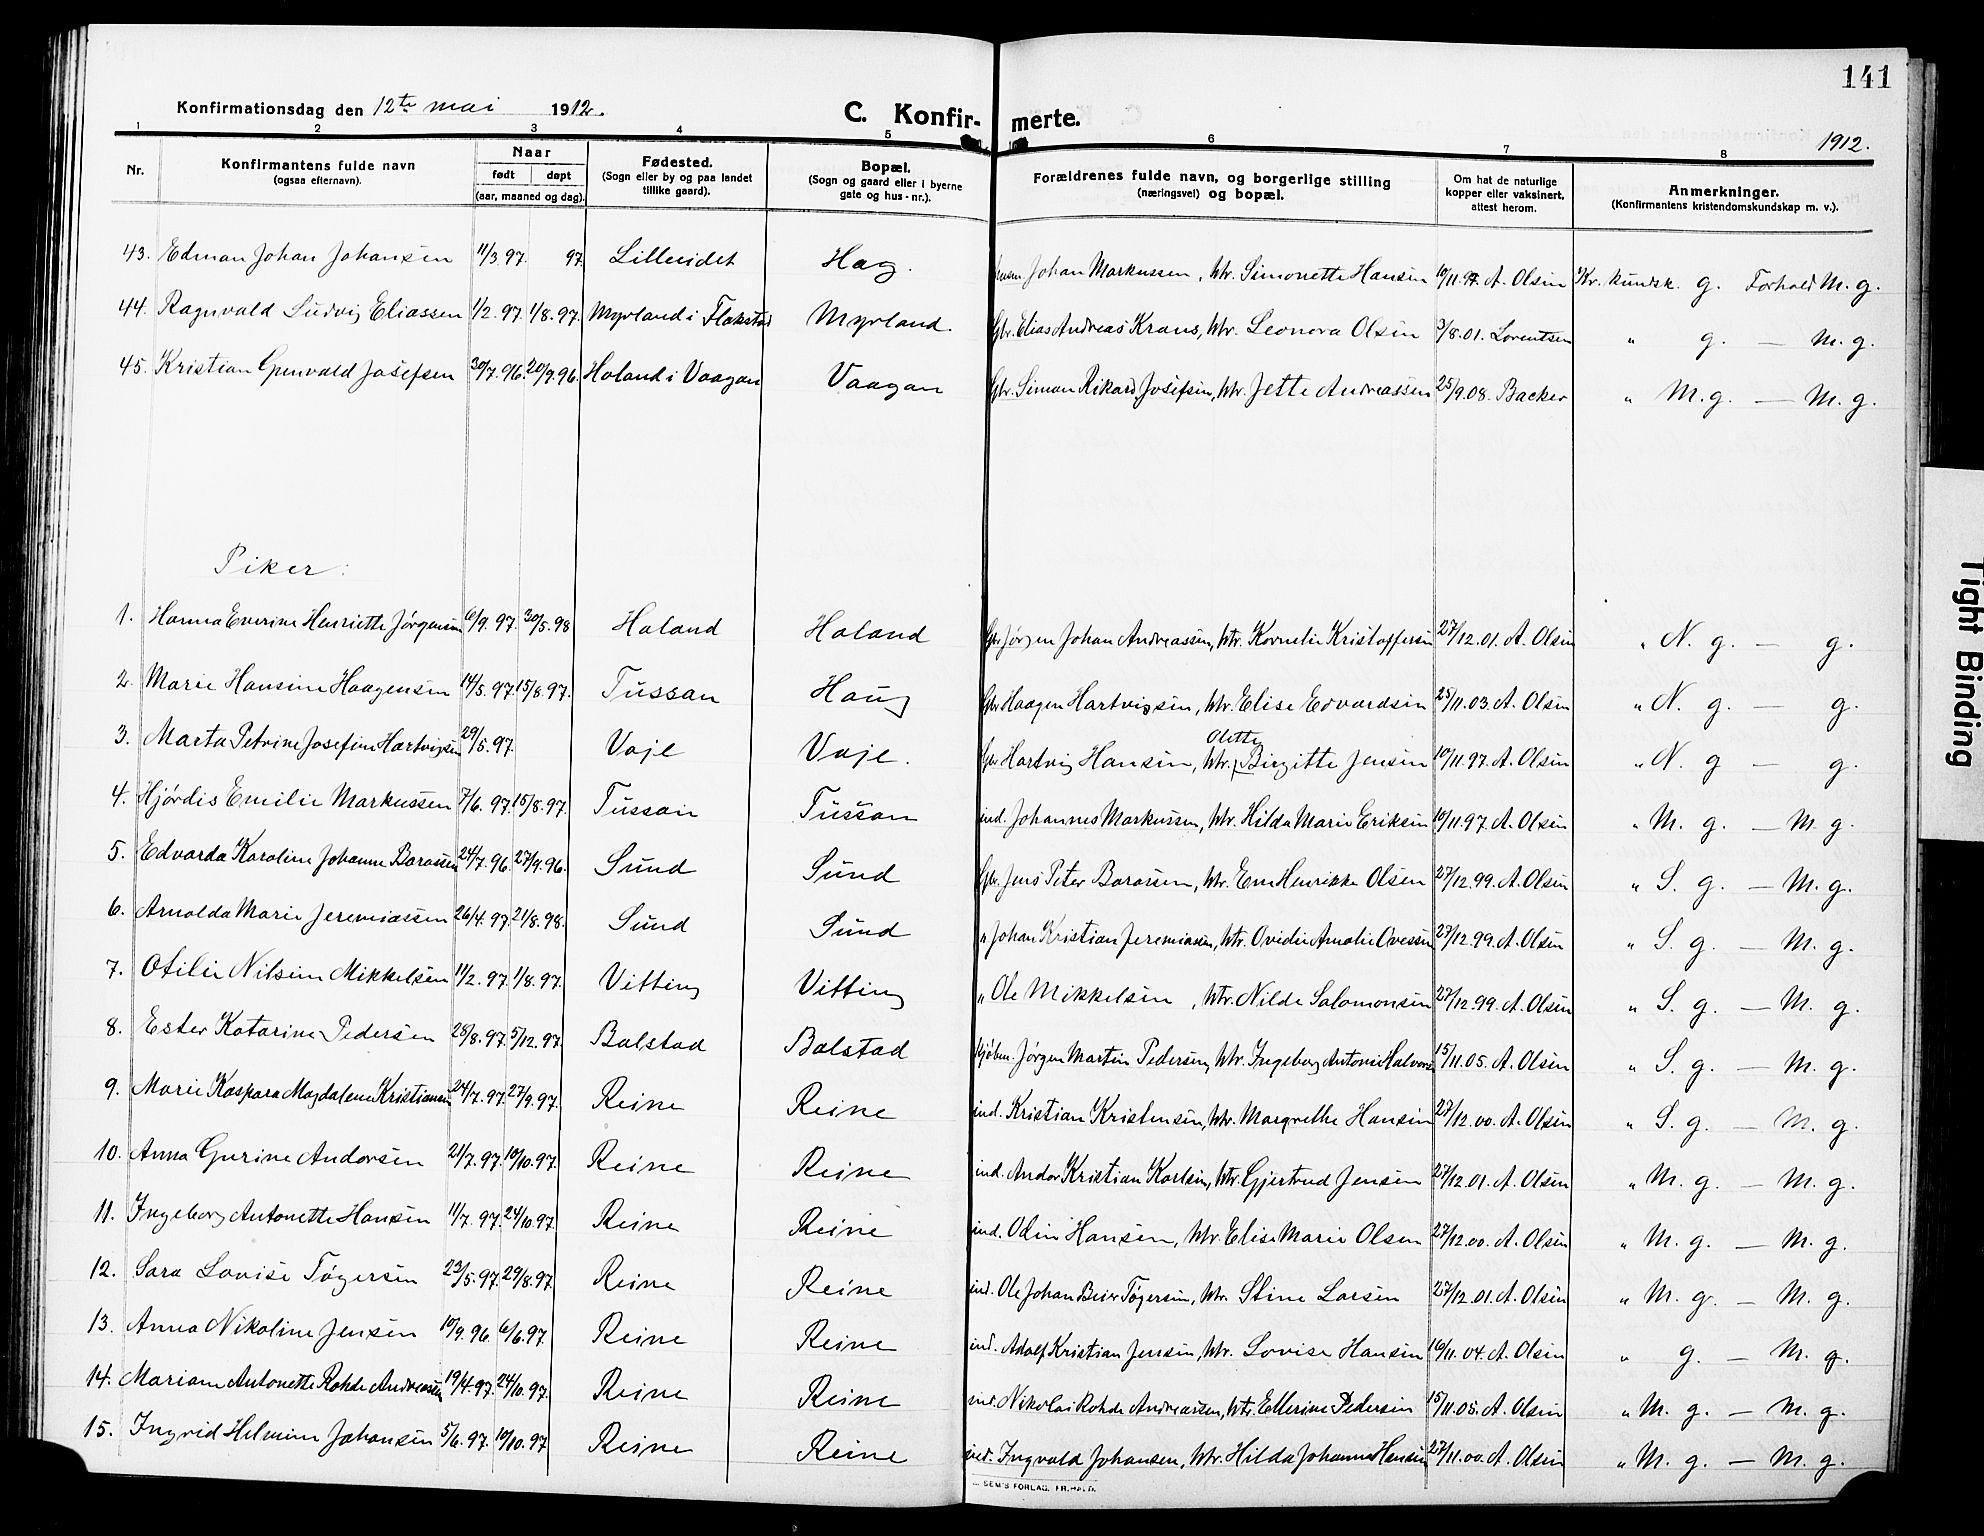 141
Konfirmationsdag den 12te mai 1912.
C. Konfir- merte.
1912.
1 2 3 4 5 6 7 8
Nr.
Konfirmantens fulde navn
(ogsaa efternavn).
Naar
født døpt
(aar, maaned og dag).
Fødested.
(Sogn eller by og paa landet
tillike gaard).
Bopæl.
(Sogn og gaard eller i byerne
gate og hus-nr.).
Forældrenes fulde navn, og borgerlige stilling
(næringsvei) og bopæl.
Om hat de naturlige
kopper eller vaksinert,
attest herom.
Anmerkninger.
(Konfirmantens kristendomskundskap m. v.).
43. Edman Johan Johansen 11/3.97. 97. Lilleeidet Hag. Johan Markussen, Htr. Simonette Hansen 10/11.97. A. Olsen Kr. kundsk. g. Forhold M. g.
44. Ragnvald Ludvig Eliassen 1/2.97. 1/8.97. Myrland i Flakstad Myrland. Gbr. Elias Andreas Kraus, Htr. Leonora Olsen 3/8.01. Lorentsen " g. — M. g.
45. Kristian Gunvald Josefsen 30/7.96. 20/9.96. Holand i Vaagan Vaagan Gbr. Simon Rikard Josefsen, Htr. Jette Andreassen 25/9.08. Backer " M. g. — M. g.
Piker:
1. Hanna Everine Henriette Jørgensen 6/9.97. 30/5.98 Holand Holand Gbr. Jørgen Johan Andreassen, Htr. Kornelie Kristoffersen 27/12.01. A. Olsen " N. g. — g.
2. Marie Hansine Haagensen 14/5.97. 15/8.97. Tussan Haug Gbr. Haagen Hartvigsen, Htr. Elise Edvardsen 25/11.03. A. Olsen " N. g. — g.
Olette
3. Marta Petrine Josefine Hartvigsen 29/5.97. Voje Voje. Gbr. Hartvig Hansen, Htr. Birgitte Jensen 10/11.97. A. Olsen " N. g — g.
4. Hjørdis Emilie Markussen 7/6.97. 15/8.97. Tussan Tussan ind. Johannes Markussen, Htr. Hilda Marie Eriksen 10/11.97. A. Olsen " M. g. — M. g.
5. Edvarda Karoline Johanne 24/7.96. 27/9.96. Sund Sund Gbr. Jens Peter Htr. Henrikke Olsen 27/12.99. A. Olsen " S. g. — M. g.
6. Arnolda Marie Jeremiassen 26/4.97. 21/8.98. Sund Sund " Johan Kristian Jeremiassen, Htr. Ovidie Amalie 27/12.99. A. Olsen " S. g. — M. g.
7. Otilie Nilsine Mikkelsen 11/2.97. 1/8.97. Vitting Vitting " Ole Mikkelsen, Htr. Nilde Salomonsen 27/12.99. A. Olsen " S. g. — M. g.
8. Ester Katarine Pedersen 28/8.97. 5/12.97. Balstad Balstad Kjøbm. Jørgen Martin Pedersen, Htr. Ingeborg Antonie 15/11.05. A. Olsen " S. g. — M. g.
9. Marie Kaspara Magdalene Kristiansen 24/7.97. 27/9.97. Reine Reine ind. Kristian Kristensen, Htr. Margrethe Hansen 27/12.00. A. Olsen " S. g. — M. g.
10. Anna Gurine Andorsen 21/7.97. 10/10.97. Reine Reine ind. Andor Kristian Karlsen, Htr. Gjertrud Jensen 27/12.01. A. Olsen " M. g. — M. g.
11. Ingeborg Antonette Hansen 11/7.97. 24/10.97. Reine Reine ind. Odin Hansen, Htr. Elise Marie Olsen 27/12.00. A. Olsen " M. g. — M. g.
12. Sara Lovise Tøgersen 23/5.97. 29/8.97. Reine Reine ind. Ole Johan Beier Tøgersen, Htr. Stine Larsen 27/12.01. A. Olsen " M. g. — M. g.
13. Anna Nikoline Jensen 10/9.96. 6/6.97. Reine Reine ind. Adolf Kristian Jensen, Htr. Lovise Hansen 16/11.04. A. Olsen " g. — M. g.
14. Mariane Antonette Rohde Andreassen 19/4.97. 24/10.97. Reine Reine ind. Nikolai Rohde Andreassen, Htr. Ellerine Pedersen 15/11.05. A. Olsen " M. g. — M. g.
15. Ingrid Helmine Johansen 5/6.97. 10/10.97 Reine Reine ind. Ingvald Johansen, Htr. Hilda Johanne Hansen 27/11.00. A. Olsen " M. g. — M. g.
SEM'S FORLAG, FR.HALD.
Tight Binding